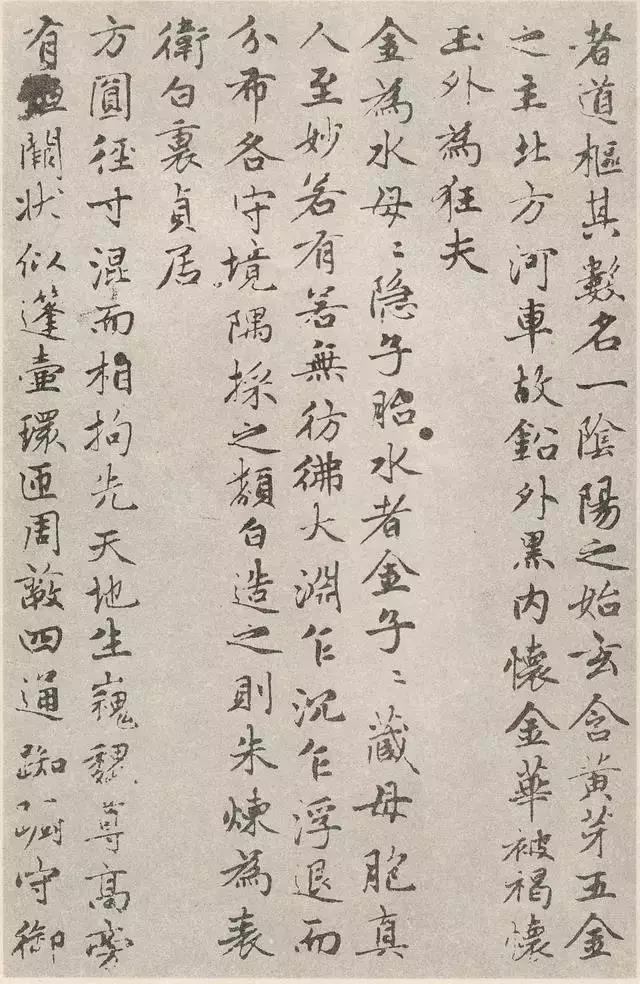 者道樞其數名一陰陽之始玄含黃芽五金
之主北方河車故鉛外黑内懷金華被褐懷
玉外為狂夫
金為水母〻隐子胎水者金子〻藏母胞真
人至妙若有若無彷彿大淵乍沉乍浮退而
分布各守境隅採之類白造之則朱煉為表
衛白裏貞居
方圓徑寸混而相拘先天地生巍巍尊高旁
有垣闕状似蓬壷環匝周敲四通踟蹰守御